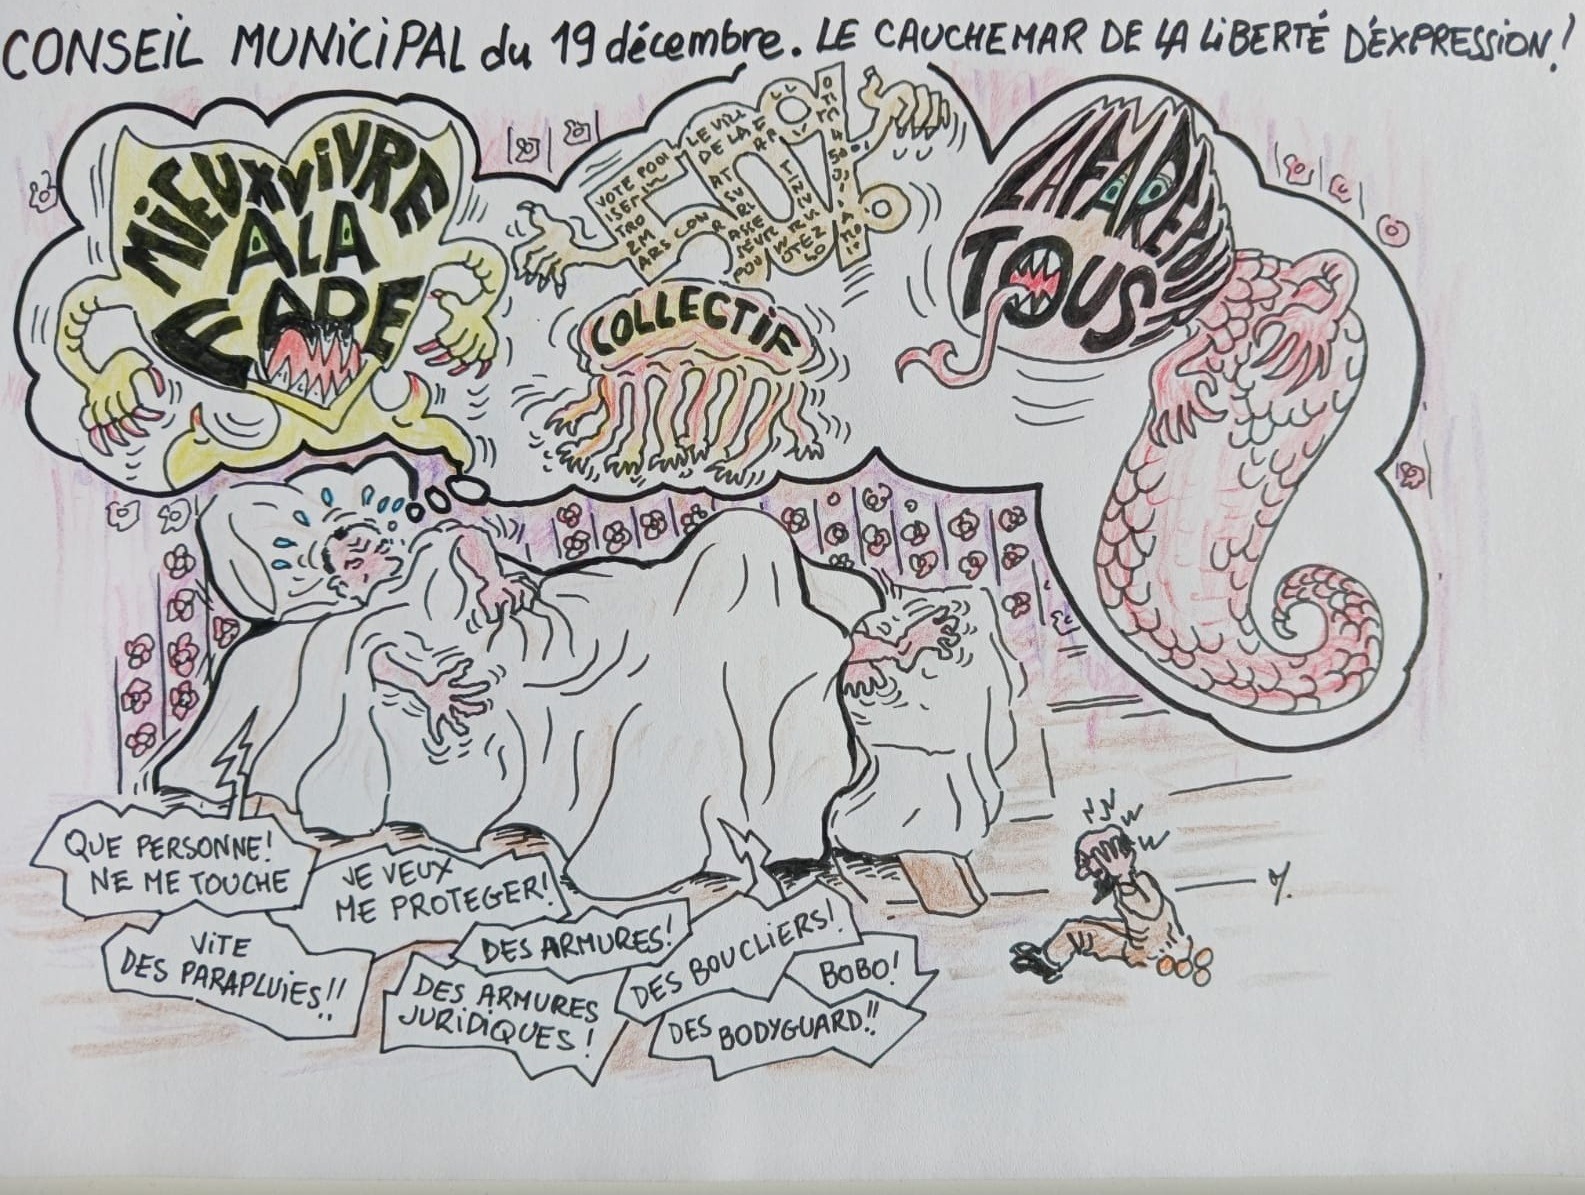 CONSEIL MUNICIPAL du 19 décembre. LE CAUCHEMAR DE LA LIBERTÉ D'EXPRESSION!
MIEUX VIVRE
A LA
FARE
COLLECTIF
LA FARE POUR
TOUS
QUE PERSONNE!
NE ME TOUCHE
JE VEUX
ME PROTEGER!
VITE
DES PARAPLUIES!!
DES ARMURES!
DES ARMURES
JURIDIQUES!
DES BOUCLIERS!
BOBO!
DES BODYGUARD!!